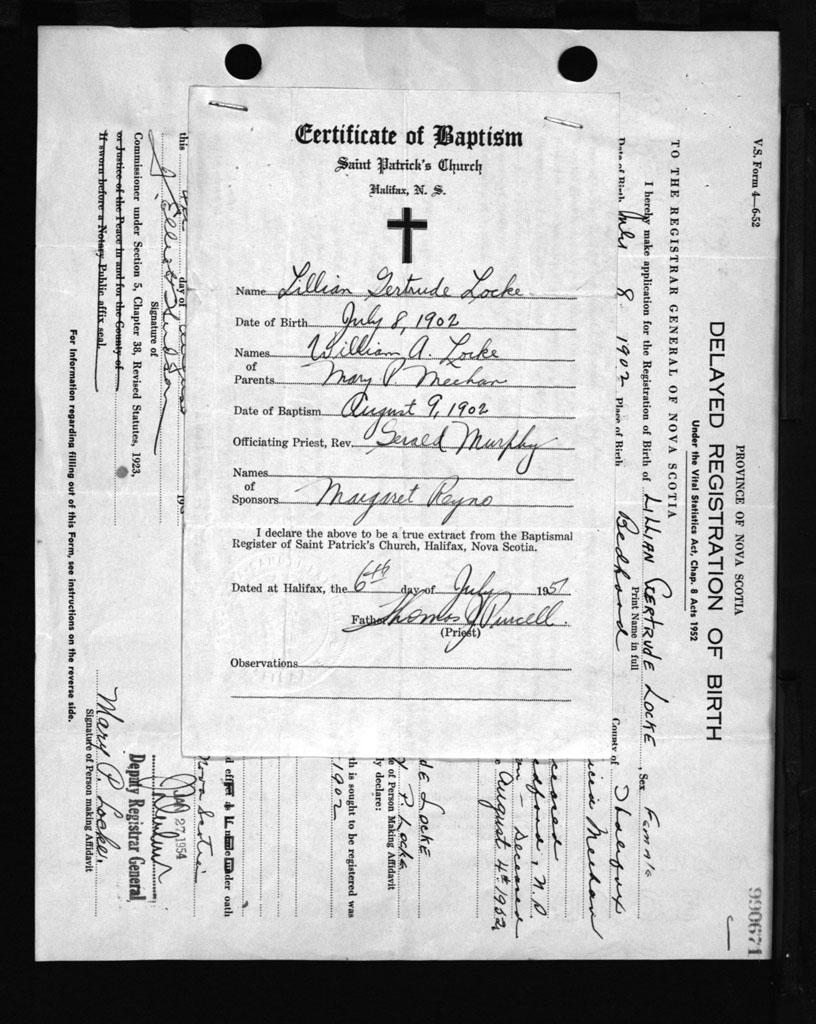 Certificate of Baptism
Saint Patrick's Church
Halifax, N. S.
Name Lillian Gertrude Locke
Date of Birth July 8, 1902
Names William A. Locke
of
Parents Mary P. Meehan
Date of Baptism August 9, 1902
Officiating Priest, Rev. Gerald Murphy
Names
of
Sponsors Margaret Reyno
I declare the above to be a true extract from the Baptismal
Register of Saint Patrick's Church, Halifax, Nova Scotia.
Dated at Halifax, the 6th day of July 1951
Father Thomas J Purcell.
(Priest)
Observations
V.S. Form 4—6-52
990671
PROVINCE OF NOVA SCOTIA
DELAYED REGISTRATION OF BIRTH
Under the Vital Statistics Act, Chap. 8 Acts 1952
TO THE REGISTRAR GENERAL OF NOVA SCOTIA
I hereby make application for the Registration of Birth of LILLIAN GERTRUDE LOCKE, Sex Female
Print Name in full
Date of Birth July 8 1902 Place of Birth Bedford County of Halifax
Meehan
N.S.
Deceased
August 4th 1952
de Locke
P. Locke
e of Person Making Affidavit
ly declare:
th is sought to be registered was
1902
d effect as if made under oath
Nova Scotia
this 4th day of August 195
Signature of
Commissioner under Section 5, Chapter 38, Revised Statutes, 1923,
or Justice of the Peace in and for the County of
If sworn before a Notary Public affix seal.
27 1954
Deputy Registrar General
Mary P. Locke.
Signature of Person making Affidavit
For Information regarding filling out of this Form, see instructions on the reverse side.